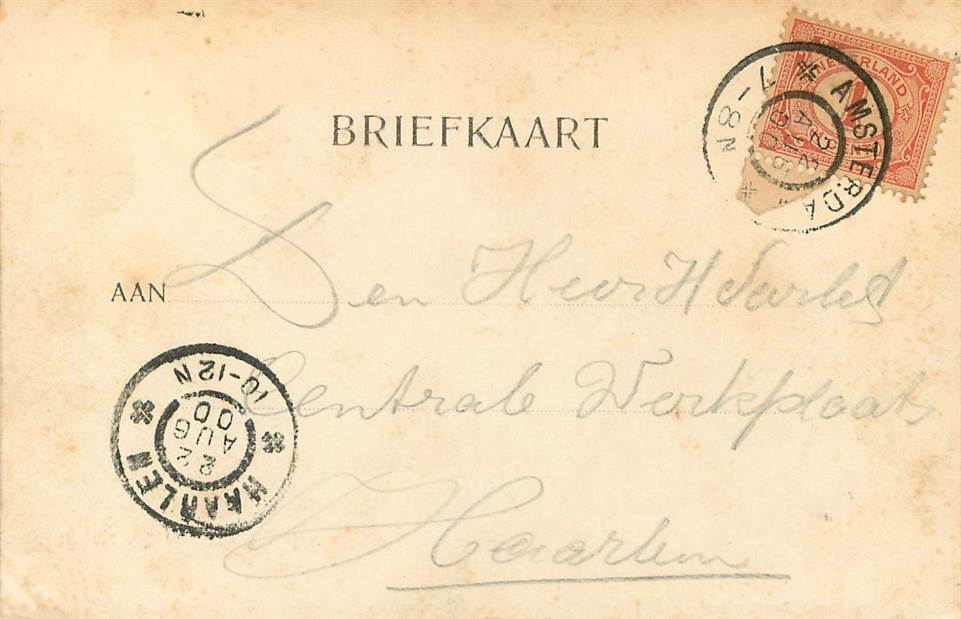 BRIEFKAART
NEDERLAND
1
AMSTERDA
7-8N
22
AUG
00
AAN Den Heer H
Centrale Werkplaats
Haarlem
HAARLEM
22
AUG
00
10-12N